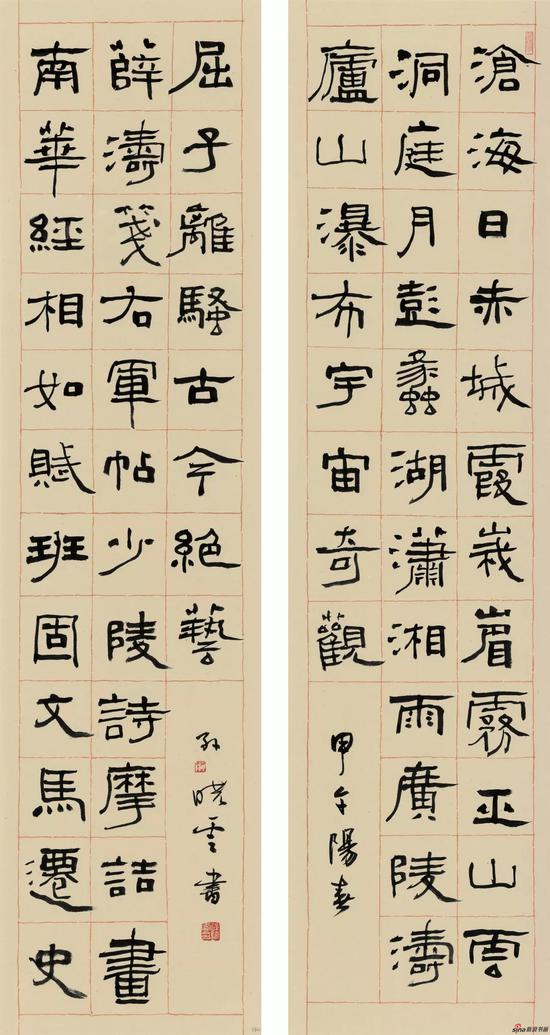 滄海日赤城霞峩嵋霧巫山雲
洞庭月彭蠡湖瀟湘雨廣陵濤
廬山瀑布宇宙奇觀
甲午陽春
南華經相如賦班固文馬遷史
薛濤箋右軍帖少陵詩摩詰畫
屈子離騷古今絕藝
孫曉雲書
sina